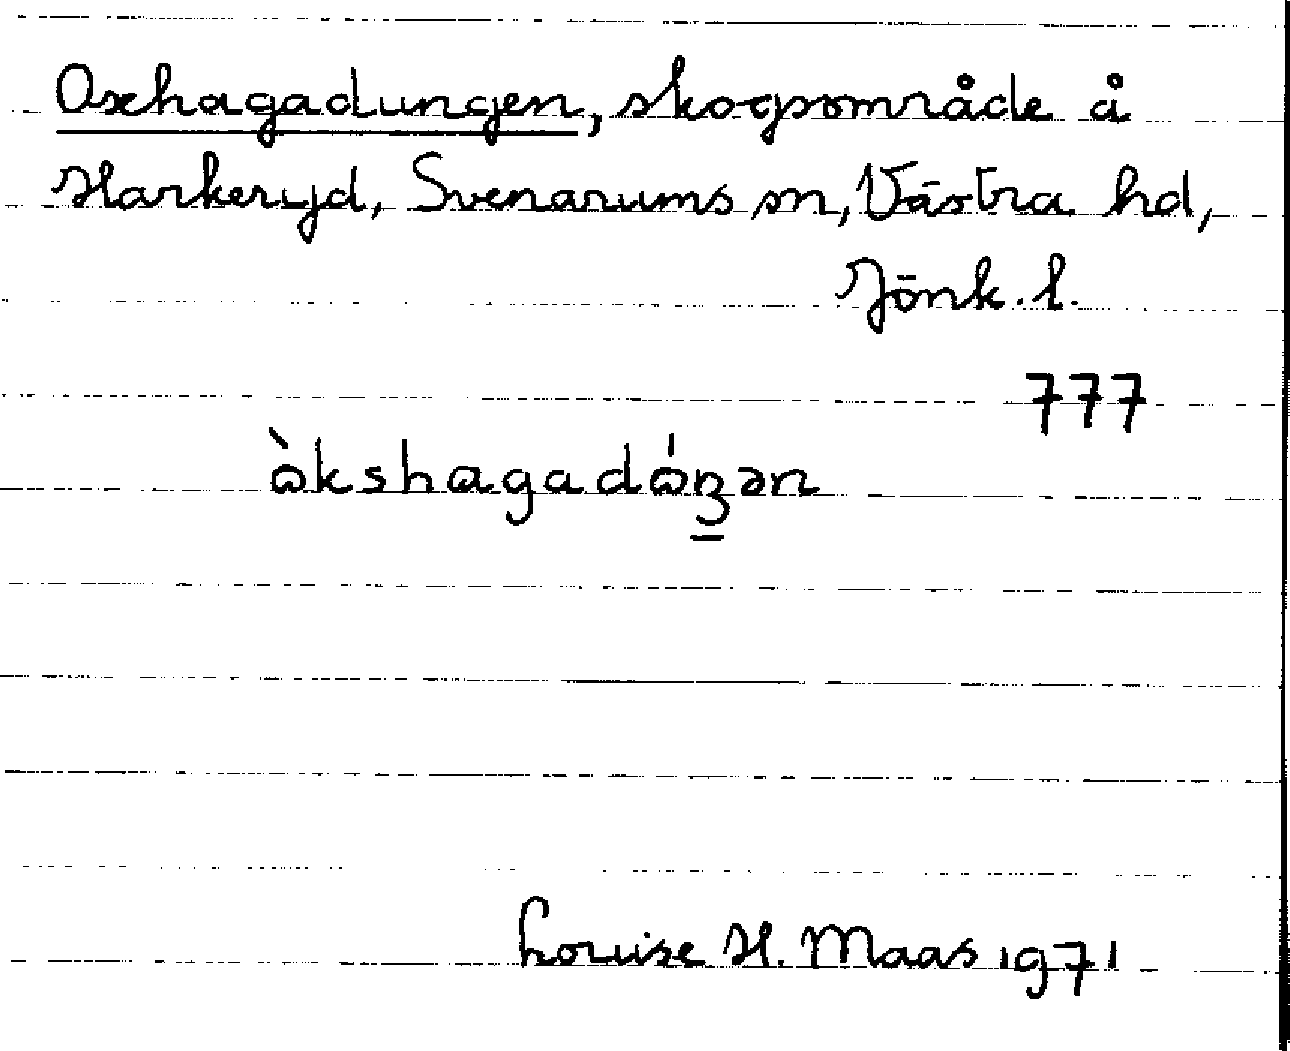 Oxhagadungen, skogsområde å
Harkeryd, Svenarums sn, Västra hd,
Jönk. l.
777
ò̀kshagadó̀ŋən
Louise H. Maas 1971